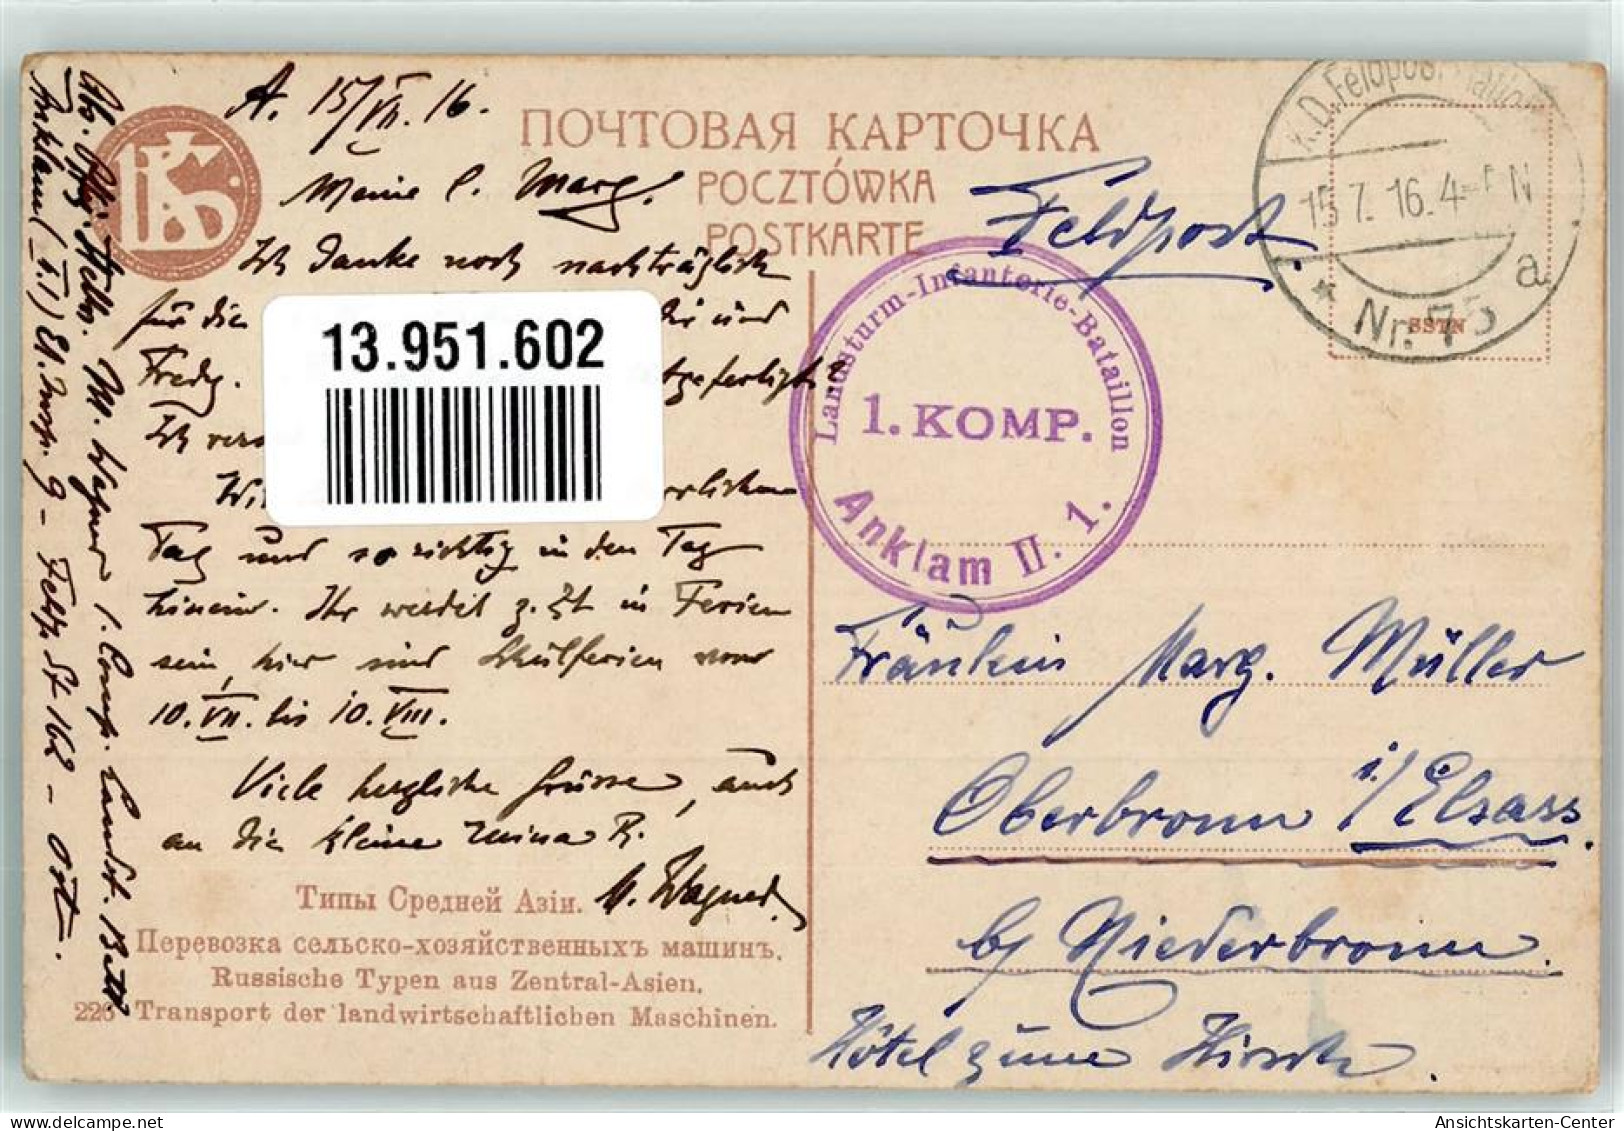 A. 15/VII. 16.
Meine l. Marg.!
Ich danke noch nachträglich
für die
und
Fredy.
Ich
13.951.602
Tag und so richtig in den Tag
hinein. Ihr werdet z. Zt in Ferien
sein, hier sind Schulferien vom
10. VII. bis 10. VIII.
Viele herzliche Grüsse, auch
an die kleine Mina R.
M. Wagner
ПОЧТОВАЯ КАРТОЧКА
POCZTÓWKA
POSTKARTE
Типы Средней Азіи.
Перевозка сельско-хозяйственныхъ машинъ.
Russische Typen aus Zentral-Asien.
226 Transport der landwirtschaftlichen Maschinen.
Feldpost.
K.D. Feldpoststation
15.7.16. 4-5 N
a
* Nr. 75
Landsturm-Infanterie-Bataillon
1. KOMP.
Anklam II. 1.
Fräulein Marg. Müller
Oberbronn i/Elsass.
b/ Niederbronn.
Hôtel zum Hirsch.
M. Wagner 1. Comp. Landst. Batl
Anklam (II.1) 81. 9 - 162 - Ost.
Ansichtskarten-Center